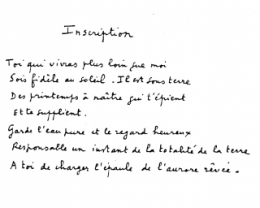 Inscription
Toi qui vivras plus loin que moi
Sois fidèle au soleil. Il est sous terre
Des printemps à naître qui t'épient
Et te supplient.
Garde l'eau pure et le regard heureux
Responsable un instant de la totalité de la terre
A toi de charger l'épaule de l'aurore rêvée.